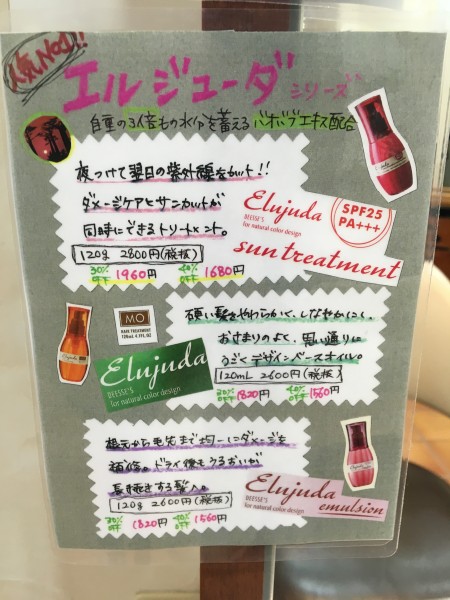 人気No.1!!
エルジューダシリーズ
自重の3倍もの水分を蓄えるバオバブエキス配合
夜つけて翌日の紫外線をカット!!
ダメージケアとサンカットが
同時にできるトリートメント。
120g 2800円(税抜)
30%OFF 1960円 40%OFF 1680円
Elujuda
DEESSE'S
for natural color design
SPF25
PA+++
sun treatment
MO
HAIR TREATMENT
120mL 4.1FL.OZ
Elujuda
DEESSE'S
for natural color design
硬い髪をやわらかく、しなやかにし、
おさまりのよく、思い通りに
うごくデザインベースオイル。
120mL 2600円(税抜)
30%OFF 1820円 40%OFF 1560円
根元から毛先まで均一にダメージを
補修。ドライ後もうるおいが
長続きする髪へ。
120g 2600円(税抜)
30%OFF 1820円 40%OFF 1560円
Elujuda
DEESSE'S
for natural color design
emulsion